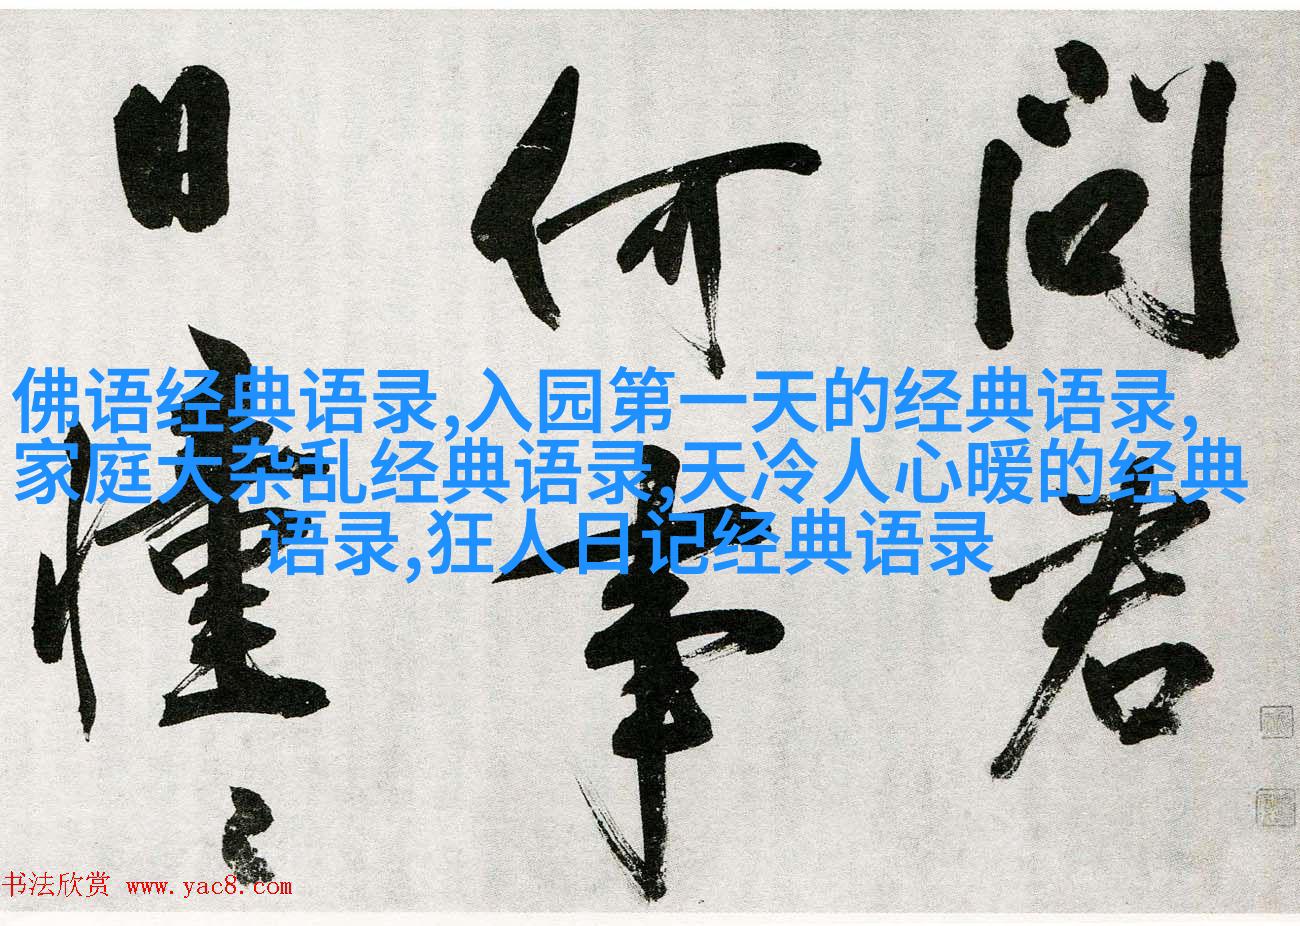 问君
何事
日憧々
佛语经典语录,入园第一天的经典语录,
家庭大杂乱经典语录,天冷人心暖的经典
语录,狂人日记经典语录
书法欣赏 www.yac8.com